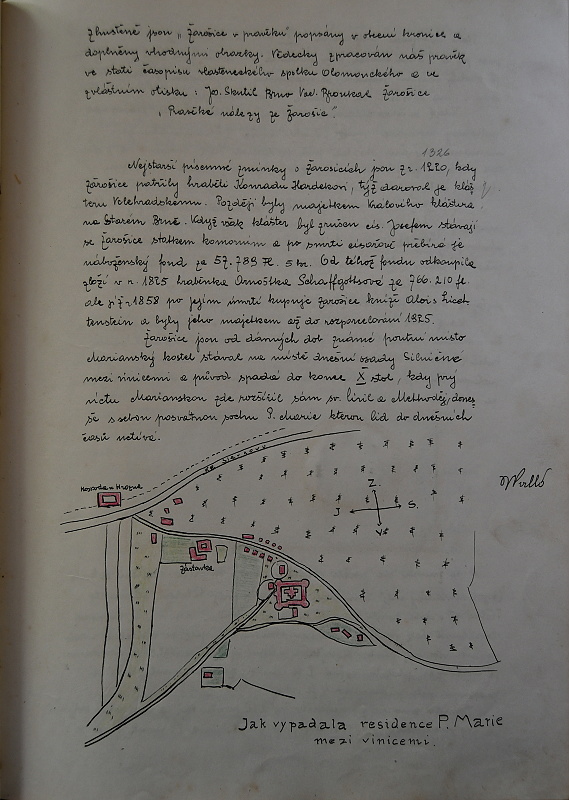 Zhuštěně jsou „Žarošice v pravěku" popsány v obecní kronice a
doplněny vhodnými obrazky. Vědecky zpracován náš pravěk
ve stati časopisu vlasteneckého spolku Olomouckého a ve
zvláštním otisku: Jo. Skutil Brno Val. Broukal Žarošice
„Pravěké nálezy ze Žarošic".
1326
Nejstarší písemné zmínky o Žarošicích jsou z r. 1220, kdy
Žarošice patřily hraběti Konrádu Hardekovi, týž daroval je kláš
teru Velehradskému. Později byly majetkem Kralového kláštera
na Starém Brně. Když však klášter byl zrušen cís. Josefem stávají
se Žarošice statkem komorním a po smrti císařově přebírá je
náboženský fond za 57.789 zl. 5 kr. Od téhož fondu odkoupila
zboží v r. 1825 hraběnka Arnoštka Schaffgottsová za 766.210 fl.
ale již r. 1858 po jejím úmrtí kupuje Žarošice kníže Alois Liech
tenstein a byly jeho majetkem až do rozparcelování 1925.
Žarošice jsou od dávných dob známé poutní místo
Marianský kostel stával na místě dnešní osady Silničné
mezi vinicemi a původ spadá do konce X stol, kdy prý
úctu Marianskou zde rozšířil sám sv. Ciril a Methoděj, dones
še s sebou posvatnou sochu P. Marie kterou lid do dnešních
časů uctívá.
Hospoda u Hroznů
Silnice
Zástavka
Z.
J
S.
V
Jak vypadala residence P. Marie
mezi vinicemi.